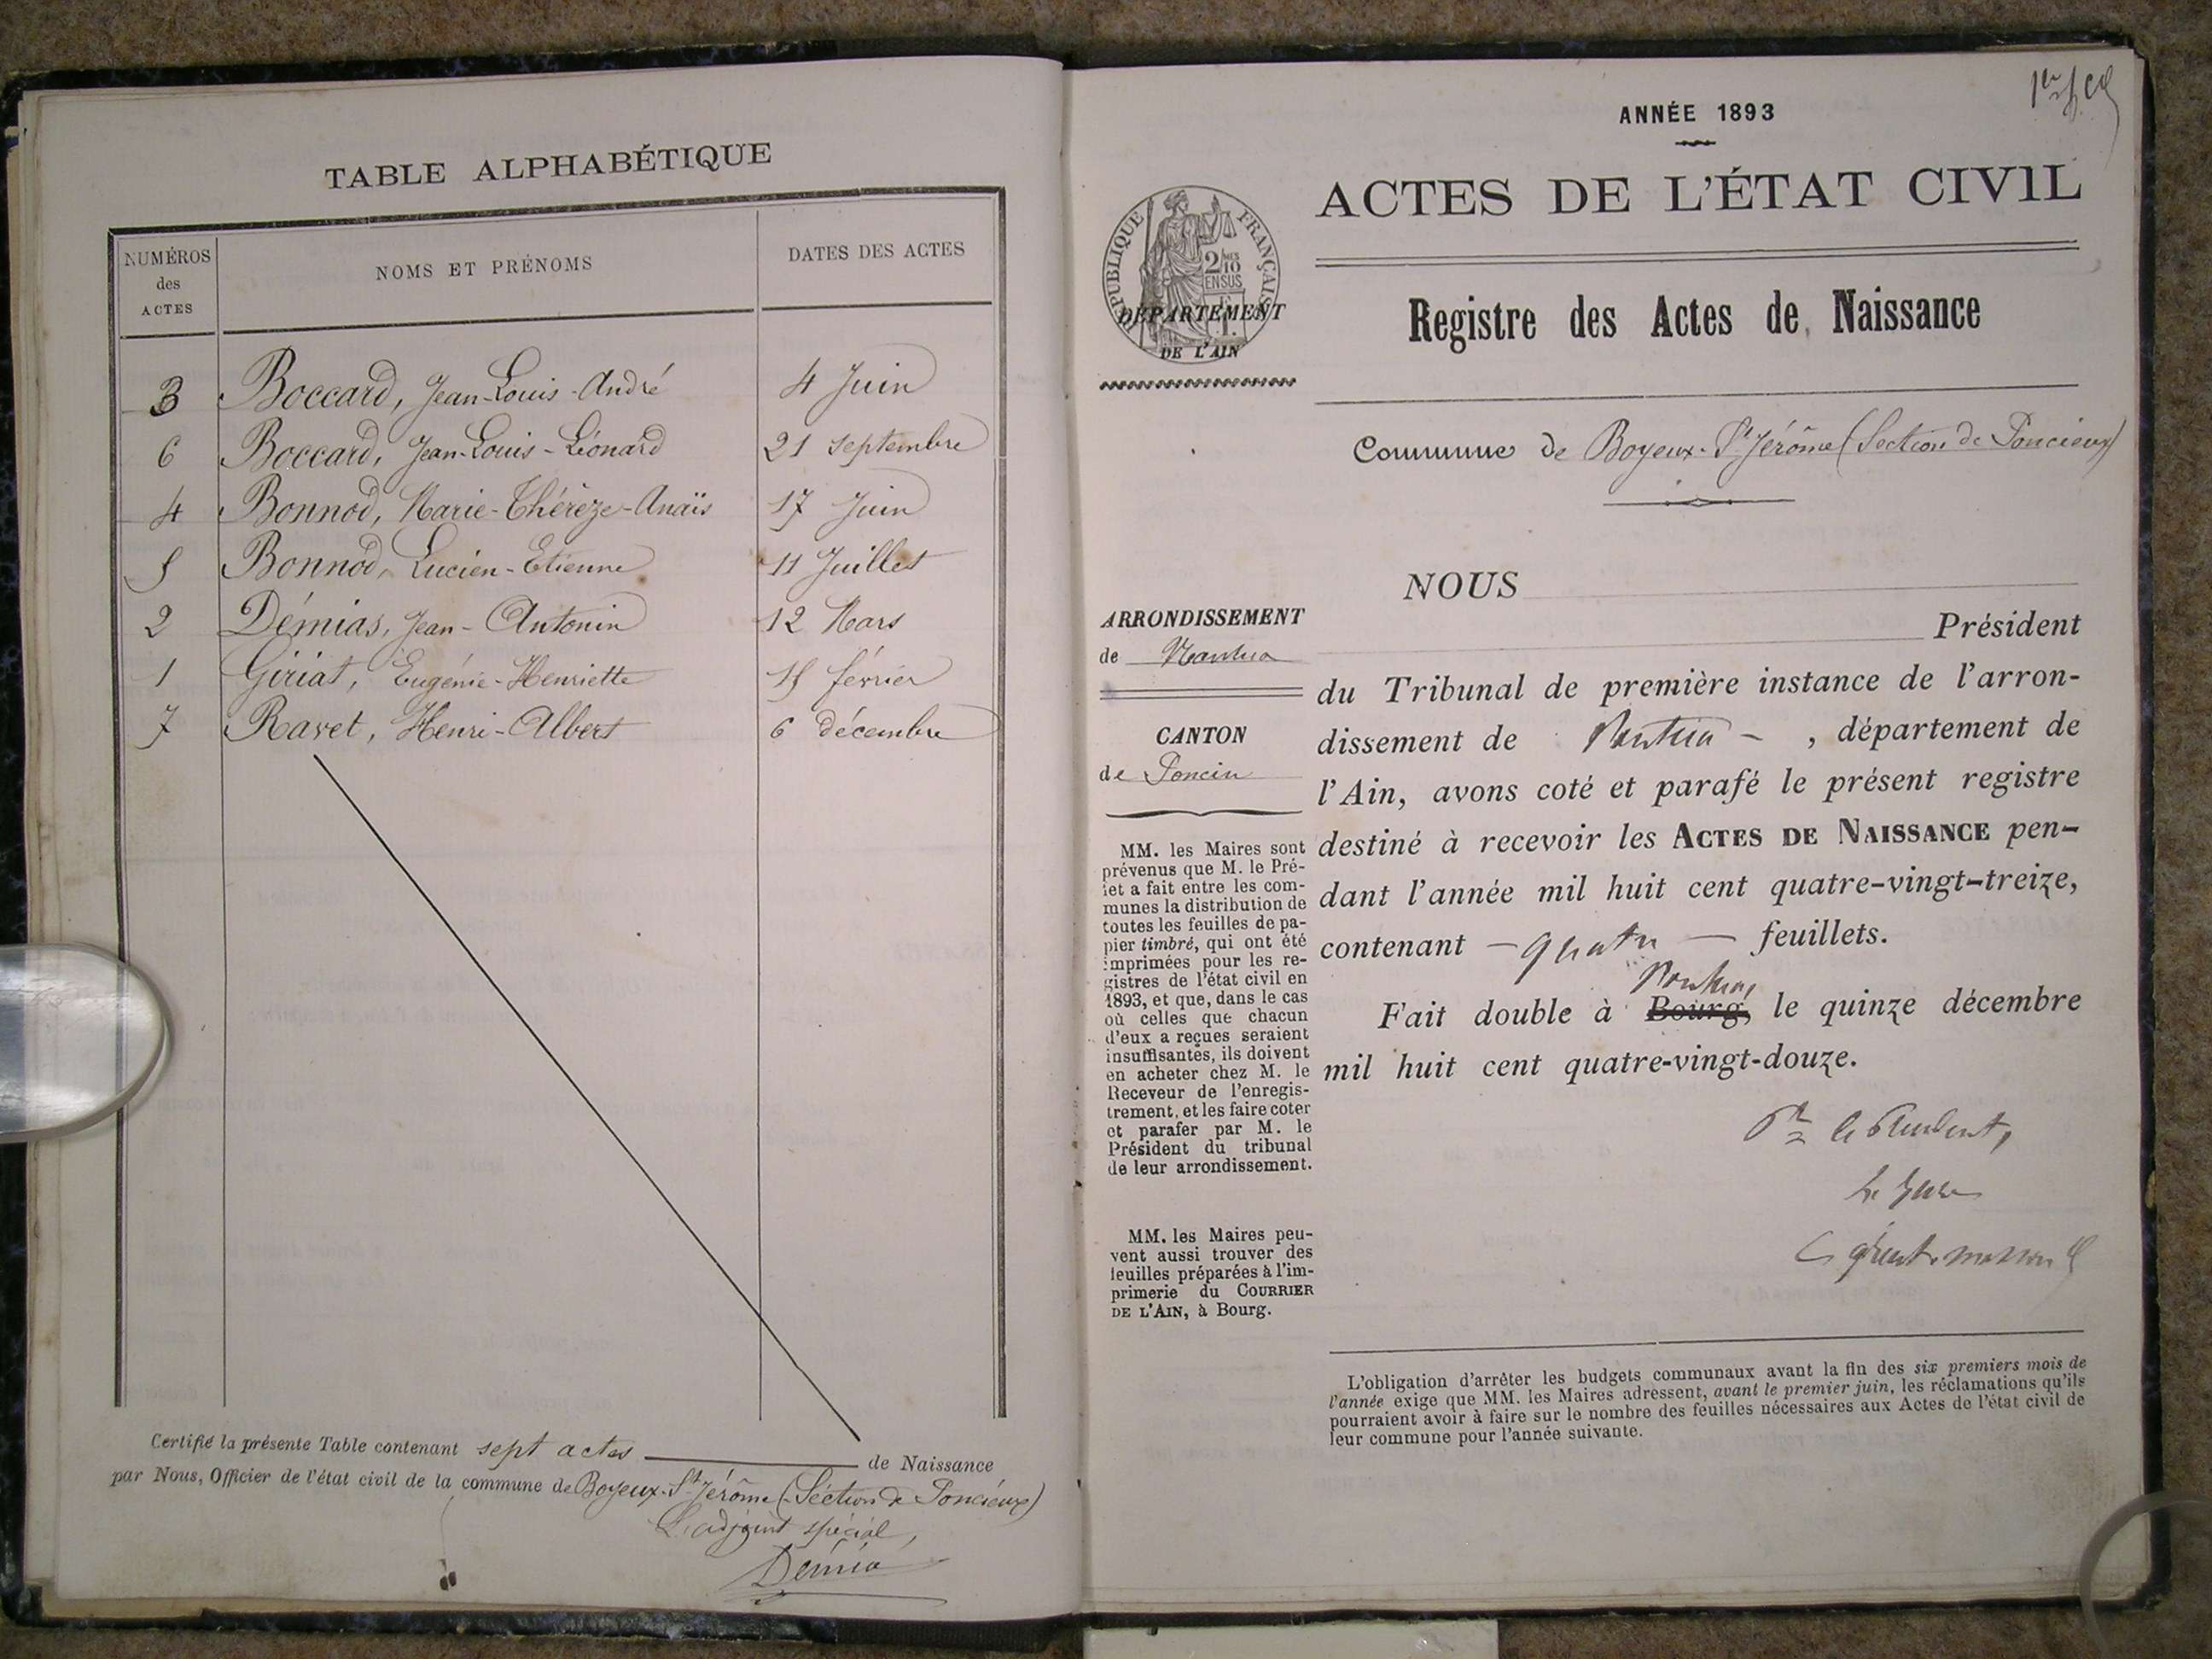 TABLE ALPHABÉTIQUE
NUMÉROS des ACTES
NOMS ET PRÉNOMS
DATES DES ACTES
3 Boccard, Jean-Louis-André 4 Juin
6 Boccard, Jean-Louis-Léonard 21 septembre
4 Bonnod, Marie-Thérèze-Anaïs 17 Juin
5 Bonnod, Lucien-Etienne 11 Juillet
2 Démias, Jean-Antonin 12 Mars
1 Giriat, Eugénie-Henriette 15 février
7 Ravet, Henri-Albert 6 décembre
Certifié la présente Table contenant sept actes de Naissance
par Nous, Officier de l'état civil de la commune de Boyeux-St Jérôme (Section de Poncieux)
L'adjoint spécial,
Démia
ANNÉE 1893
ACTES DE L'ÉTAT CIVIL
RÉPUBLIQUE FRANÇAISE
2/10 MES
EN SUS
DÉPARTEMENT
DE L'AIN
Registre des Actes de Naissance
Commune de Boyeux-St Jérôme (Section de Poncieux)
ARRONDISSEMENT
de Nantua
CANTON
de Poncin
MM. les Maires sont
prévenus que M. le Pré-
fet a fait entre les com-
munes la distribution de
toutes les feuilles de pa-
pier timbré, qui ont été
imprimées pour les re-
gistres de l'état civil en
1893, et que, dans le cas
où celles que chacun
d'eux a reçues seraient
insuffisantes, ils doivent
en acheter chez M. le
Receveur de l'enregis-
trement, et les faire coter
et parafer par M. le
Président du tribunal
de leur arrondissement.
MM. les Maires peu-
vent aussi trouver des
feuilles préparées à l'im-
primerie du COURRIER
DE L'AIN, à Bourg.
NOUS
Président
du Tribunal de première instance de l'arron-
dissement de Nantua - , département de
l'Ain, avons coté et parafé le présent registre
destiné à recevoir les ACTES DE NAISSANCE pen-
dant l'année mil huit cent quatre-vingt-treize,
contenant - quatre - feuillets.
Nantua,
Fait double à Bourg, le quinze décembre
mil huit cent quatre-vingt-douze.
Pr le Président,
Le Juge
L'obligation d'arrêter les budgets communaux avant la fin des six premiers mois de
l'année exige que MM. les Maires adressent, avant le premier juin, les réclamations qu'ils
pourraient avoir à faire sur le nombre des feuilles nécessaires aux Actes de l'état civil de
leur commune pour l'année suivante.